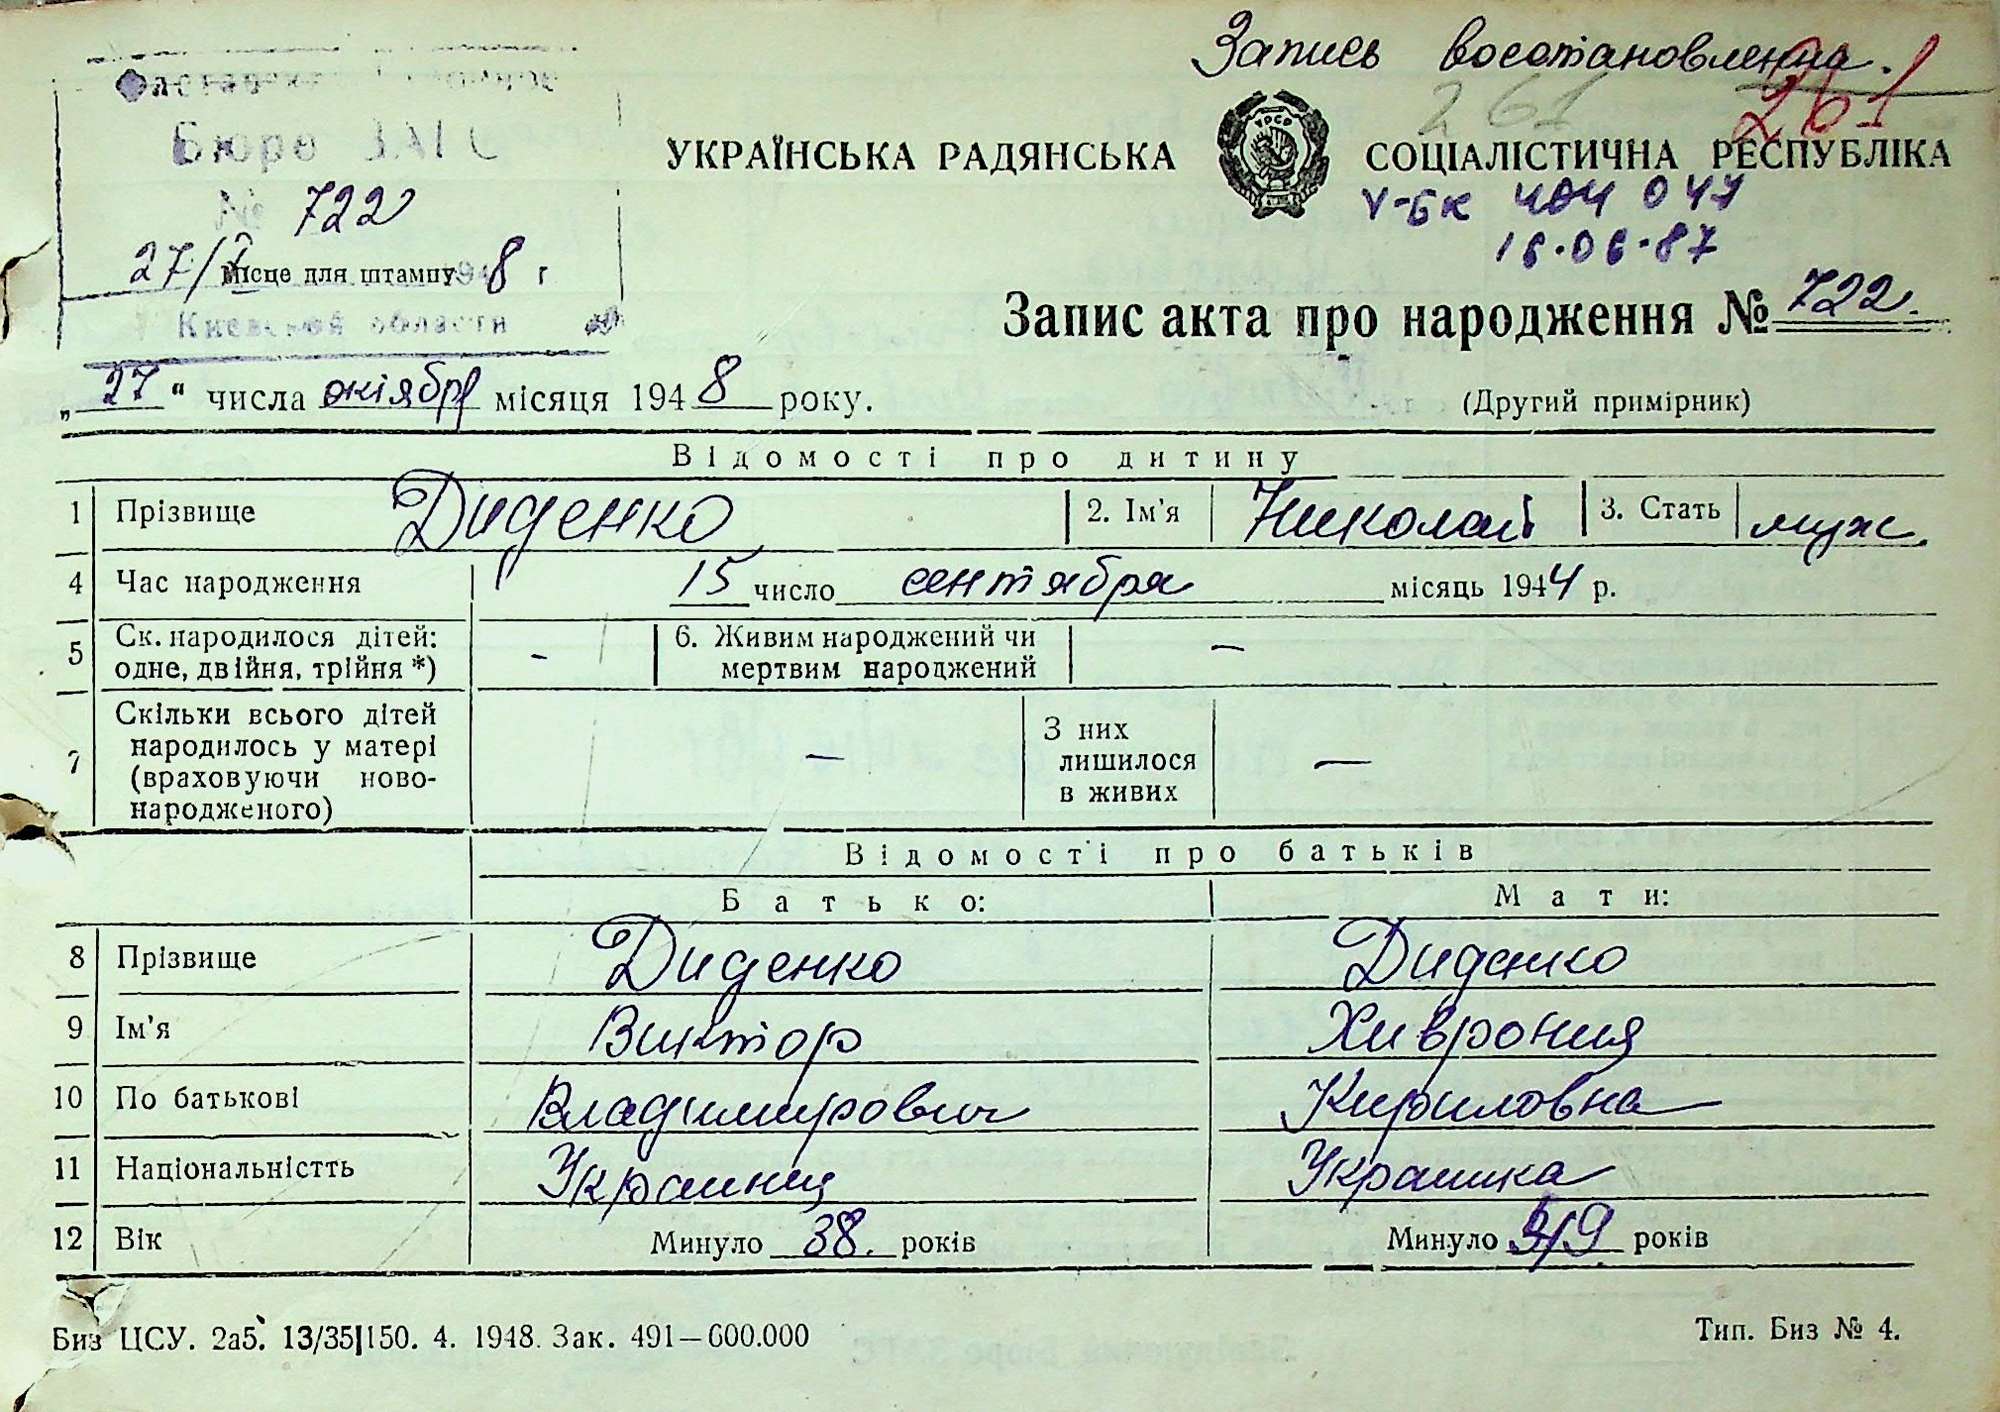 Запись восстановленна.
261 261
Бюро ЗАГС
№ 722
27/X 1948 г
Місце для штампу
Киевской области
УКРАЇНСЬКА РАДЯНСЬКА СОЦІАЛІСТИЧНА РЕСПУБЛІКА
УРСР
V-БК 404047
16.06.87
Запис акта про народження № 722.
„27“ числа октября місяця 1948 року.
(Другий примірник)
Відомості про дитину
1 Прізвище Диденко 2. Ім'я Николай 3. Стать муж.
4 Час народження 15 число сентября місяць 1944 р.
5 Ск. народилося дітей: одне, двійня, трійня *) - 6. Живим народжений чи мертвим народжений —
7 Скільки всього дітей народилось у матері (враховуючи ново-народженого) — З них лишилося в живих —
Відомості про батьків
Батько: Мати:
8 Прізвище Диденко Диденко
9 Ім'я Виктор Хиврония
10 По батькові Владимирович Кириловна
11 Національністть Украинец Украинка
12 Вік Минуло 38. років Минуло років
Биз ЦСУ. 2аб. 13/35|150. 4. 1948. Зак. 491—600.000
Тип. Биз № 4.